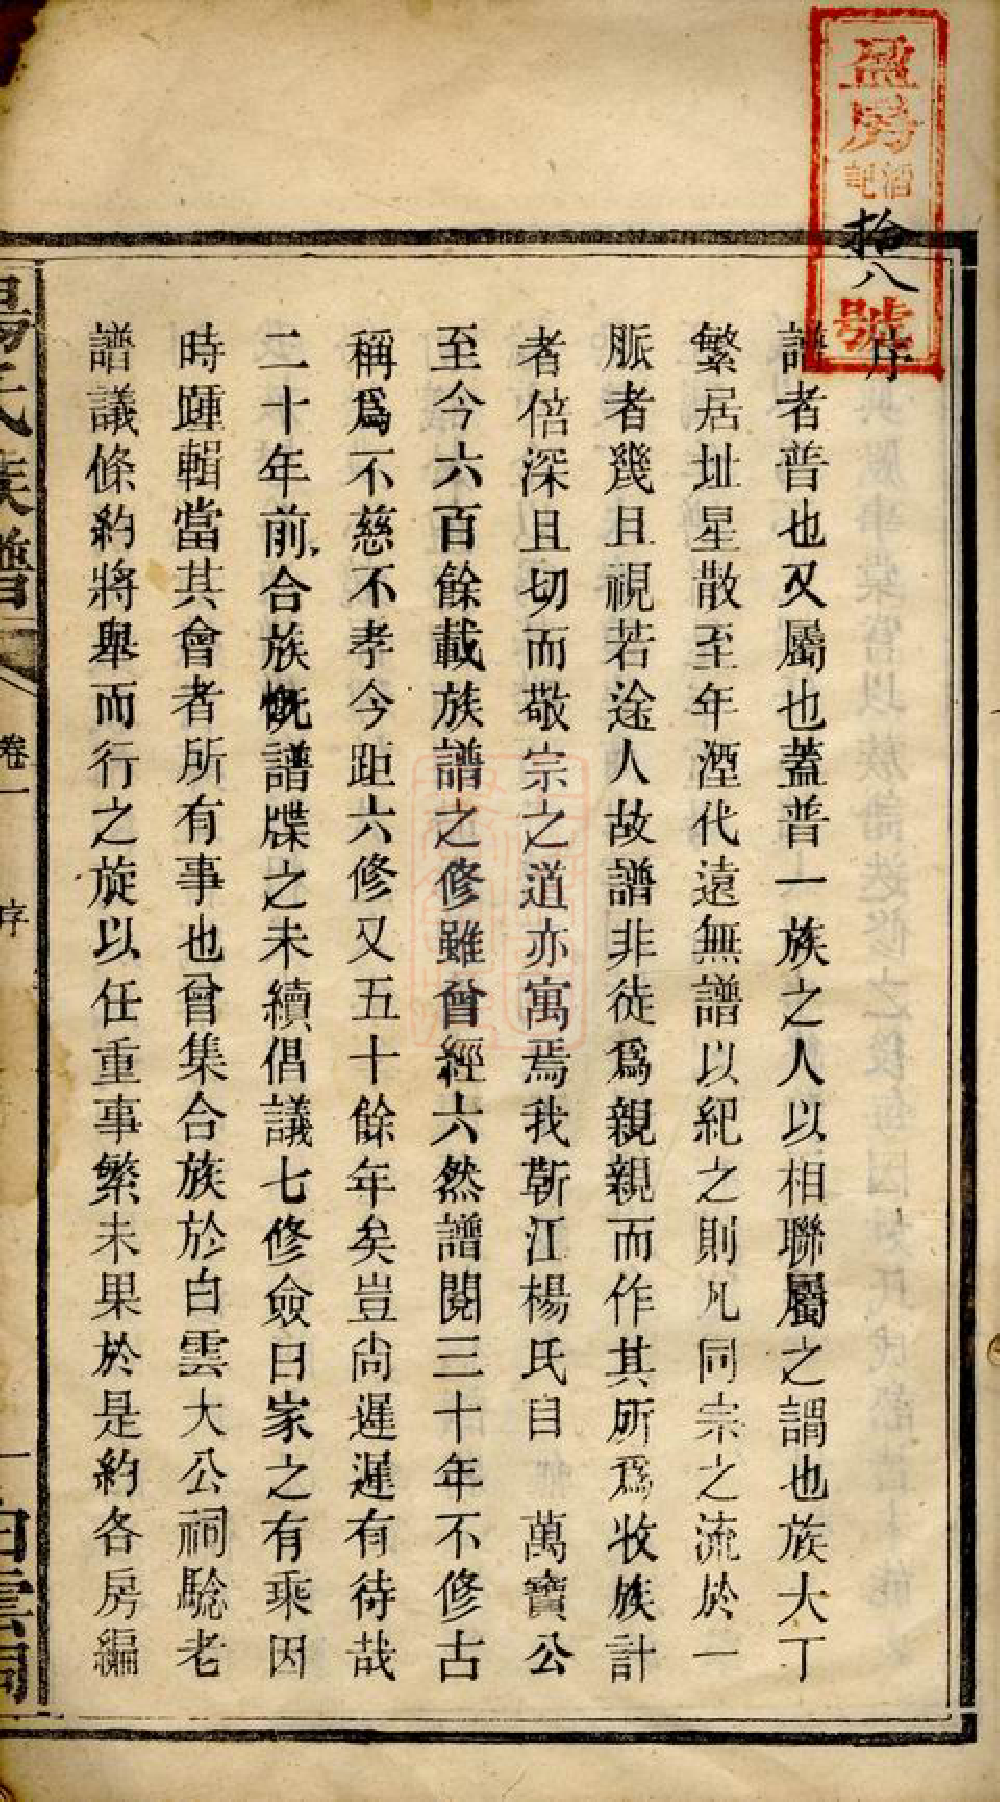 盈房
酒記
拾八
號
序
譜者普也又屬也蓋普一族之人以相聯屬之謂也族大丁
繁居址星散至年湮代遠無譜以紀之則凡同宗之流於一
脈者幾且視若途人故譜非徒爲親親而作其所爲收族計
者倍深且切而敬宗之道亦寓焉我靳江楊氏自 萬寶公
至今六百餘載族譜之修雖曾經六然譜閱三十年不修古
稱爲不慈不孝今距六修又五十餘年矣豈尙遲遲有待哉
二十年前合族慨譜牒之未續倡議七修僉曰家之有乘因
時踵輯當其會者所有事也曾集合族於白雲大公祠騐老
譜議條約將舉而行之旋以任重事繁未果於是約各房編
楊氏族譜 卷一 序 一 白雲祠